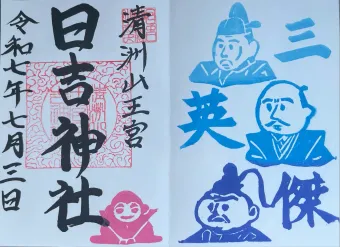 清洲山王宮
日吉神社
令和七年七月三日
三英傑